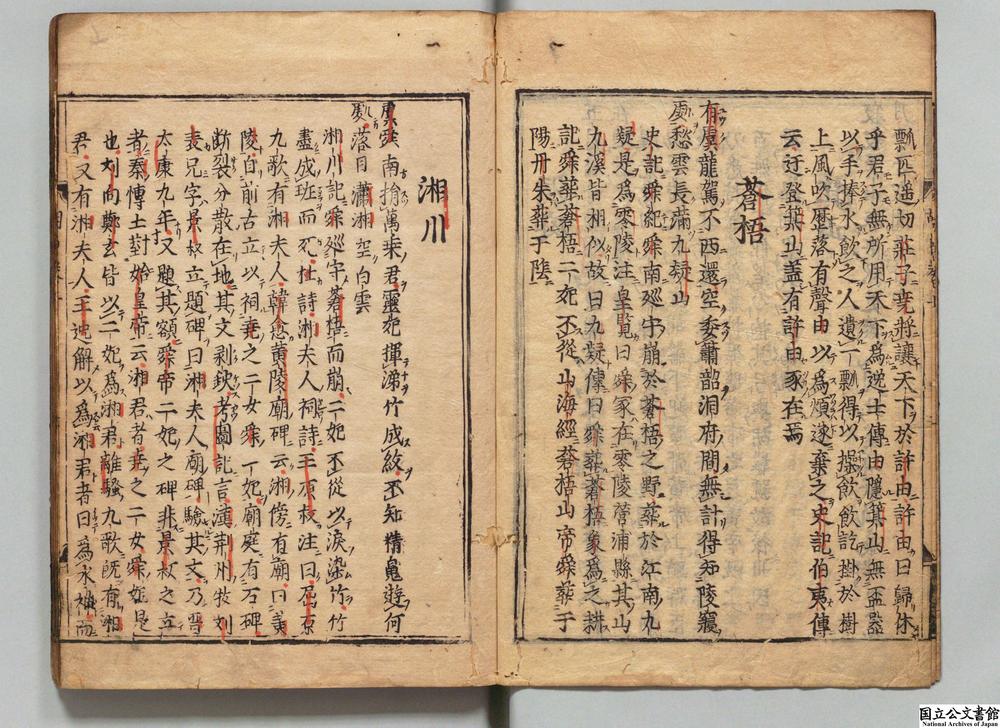 瓢匹遥切莊子堯將讓天下於許由許由曰歸休
乎君予無所用天下爲逸士傳由隱箕山無盃器
以手捧水飲之人遺一瓢得以操飲飲訖掛於樹
上風吹歴落有聲由以爲煩遂棄之史記伯夷傳
云迂登箕山盖有許由冢在焉
蒼梧
有虞龍駕不西還空委蕭韶洞府間無計得知陵寢
處愁雲長滿九疑山
史記舜紀舜南廵守崩於蒼梧之野葬於江南九
疑是爲零陵注皇覽曰舜冢在零陵營浦縣其山
九溪皆相似故曰九疑傳曰舜葬蒼梧象爲之耕
記舜葬蒼梧二妃不從山海經蒼梧山帝舜葬于
陽丹朱葬于陰
湘川
虞舜南捐萬乗君靈妃揮涕竹成紋不知精魂遊何
處落日瀟湘空白雲
湘川記舜廵守蒼梧而崩二妃不從以淚染竹竹
盡成班而死杜詩湘夫人祠詩王原枝注曰屈原
九歌有湘夫人韓愈黄陵廟碑云湘傍有廟曰黄
陵自前古立以祠堯之二女舜二妃廟庭有石碑
断裂分散在地其文剥欽考圖記言漢荆州牧刘
表兄字景叔立題碑曰湘夫人廟碑驗其文乃晋
太康九年又題其額舜帝二妃之碑非景叔之立
者秦博士對始皇帝云湘君者堯之二女舜妃是
也刘向鄭玄皆以二妃爲湘君離騷九歌既有湘
君又有湘夫人王逸解以爲湘君者曰爲水神而
国立公文書館
National Archives of Japan